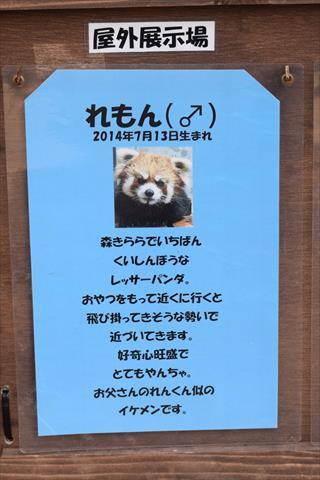 屋外展示場
れもん(♂)
2014年7月13日生まれ
森きららでいちばん
くいしんぼうな
レッサーパンダ。
おやつをもって近くに行くと
飛び掛ってきそうな勢いで
近づいてきます。
好奇心旺盛で
とてもやんちゃ。
お父さんのれんくん似の
イケメンです。